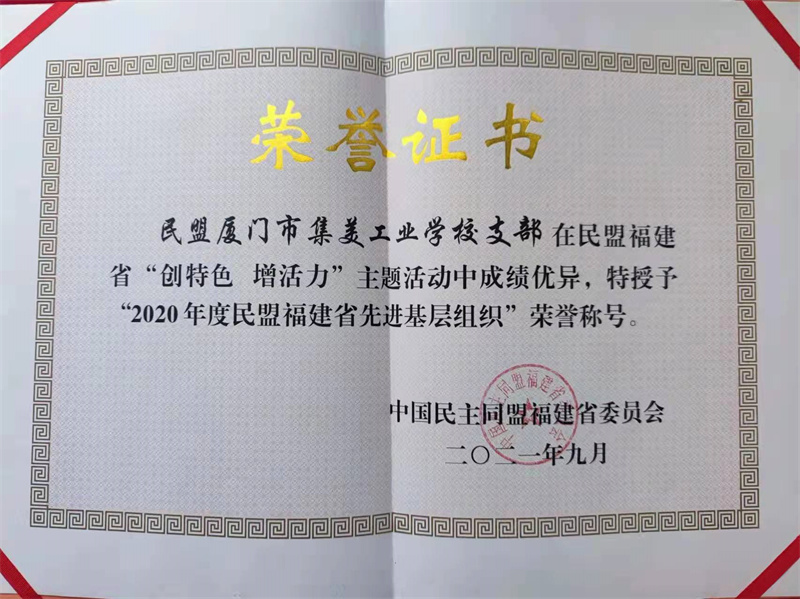 荣誉证书
民盟厦门市集美工业学校支部在民盟福建
省“创特色 增活力”主题活动中成绩优异，特授予
“2020年度民盟福建省先进基层组织”荣誉称号。
中国民主同盟福建省委员会
二〇二一年九月